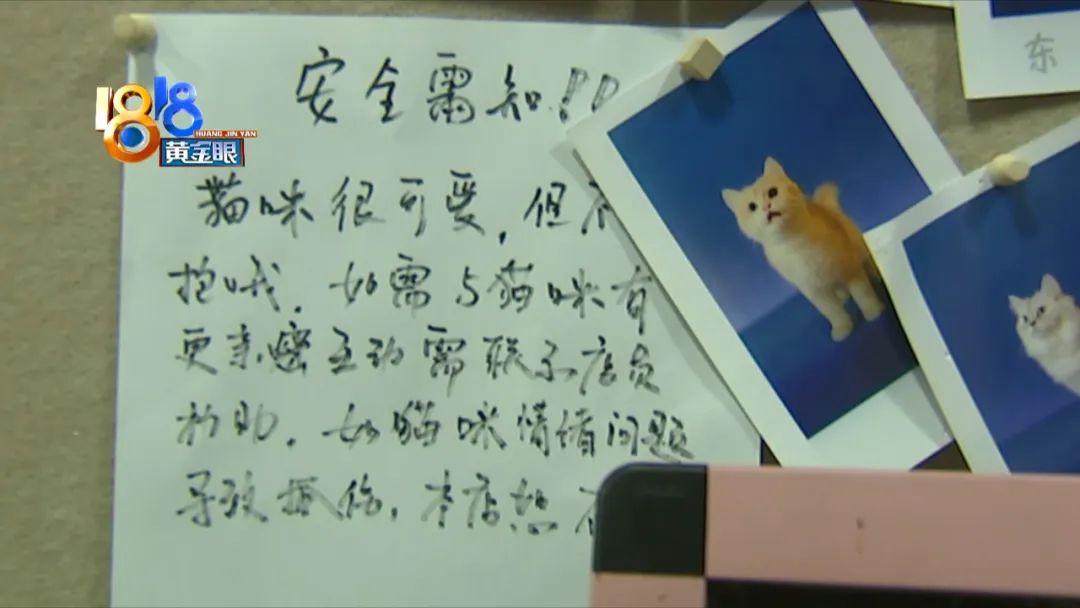 安全需知!!
1818
HUANG JIN YAN
黄金眼
东
猫咪很可爱,但不
抱哦.如需与猫咪有
更亲密互动需联系店员
协助.如猫咪情绪问题
导致抓伤,本店恕不